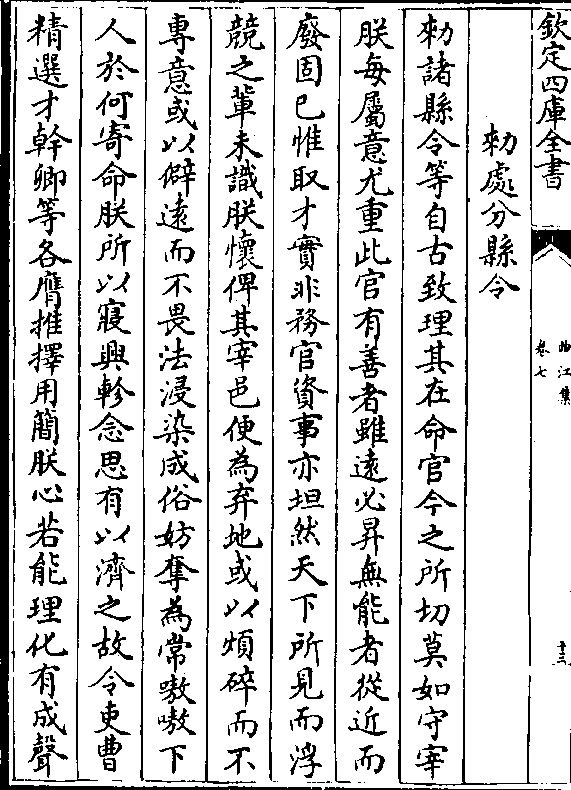 欽定四庫全書
曲江集
卷七
十三
勅處分縣令
勅諸縣令等自古致理其在命官今之所切莫如守宰
朕每屬意尤重此官有善者雖遠必昇無能者從近而
廢固已惟取才實非務官資事亦坦然天下所見而浮
競之輩未識朕懷俾其宰邑便為弃地或以煩碎而不
專意或以僻遠而不畏法浸染成俗妨奪為常嗷嗷下
人於何寄命朕所以寢興軫念思有以濟之故令吏曹
精選才幹卿等各膺推擇用簡朕心若能理化有成聲